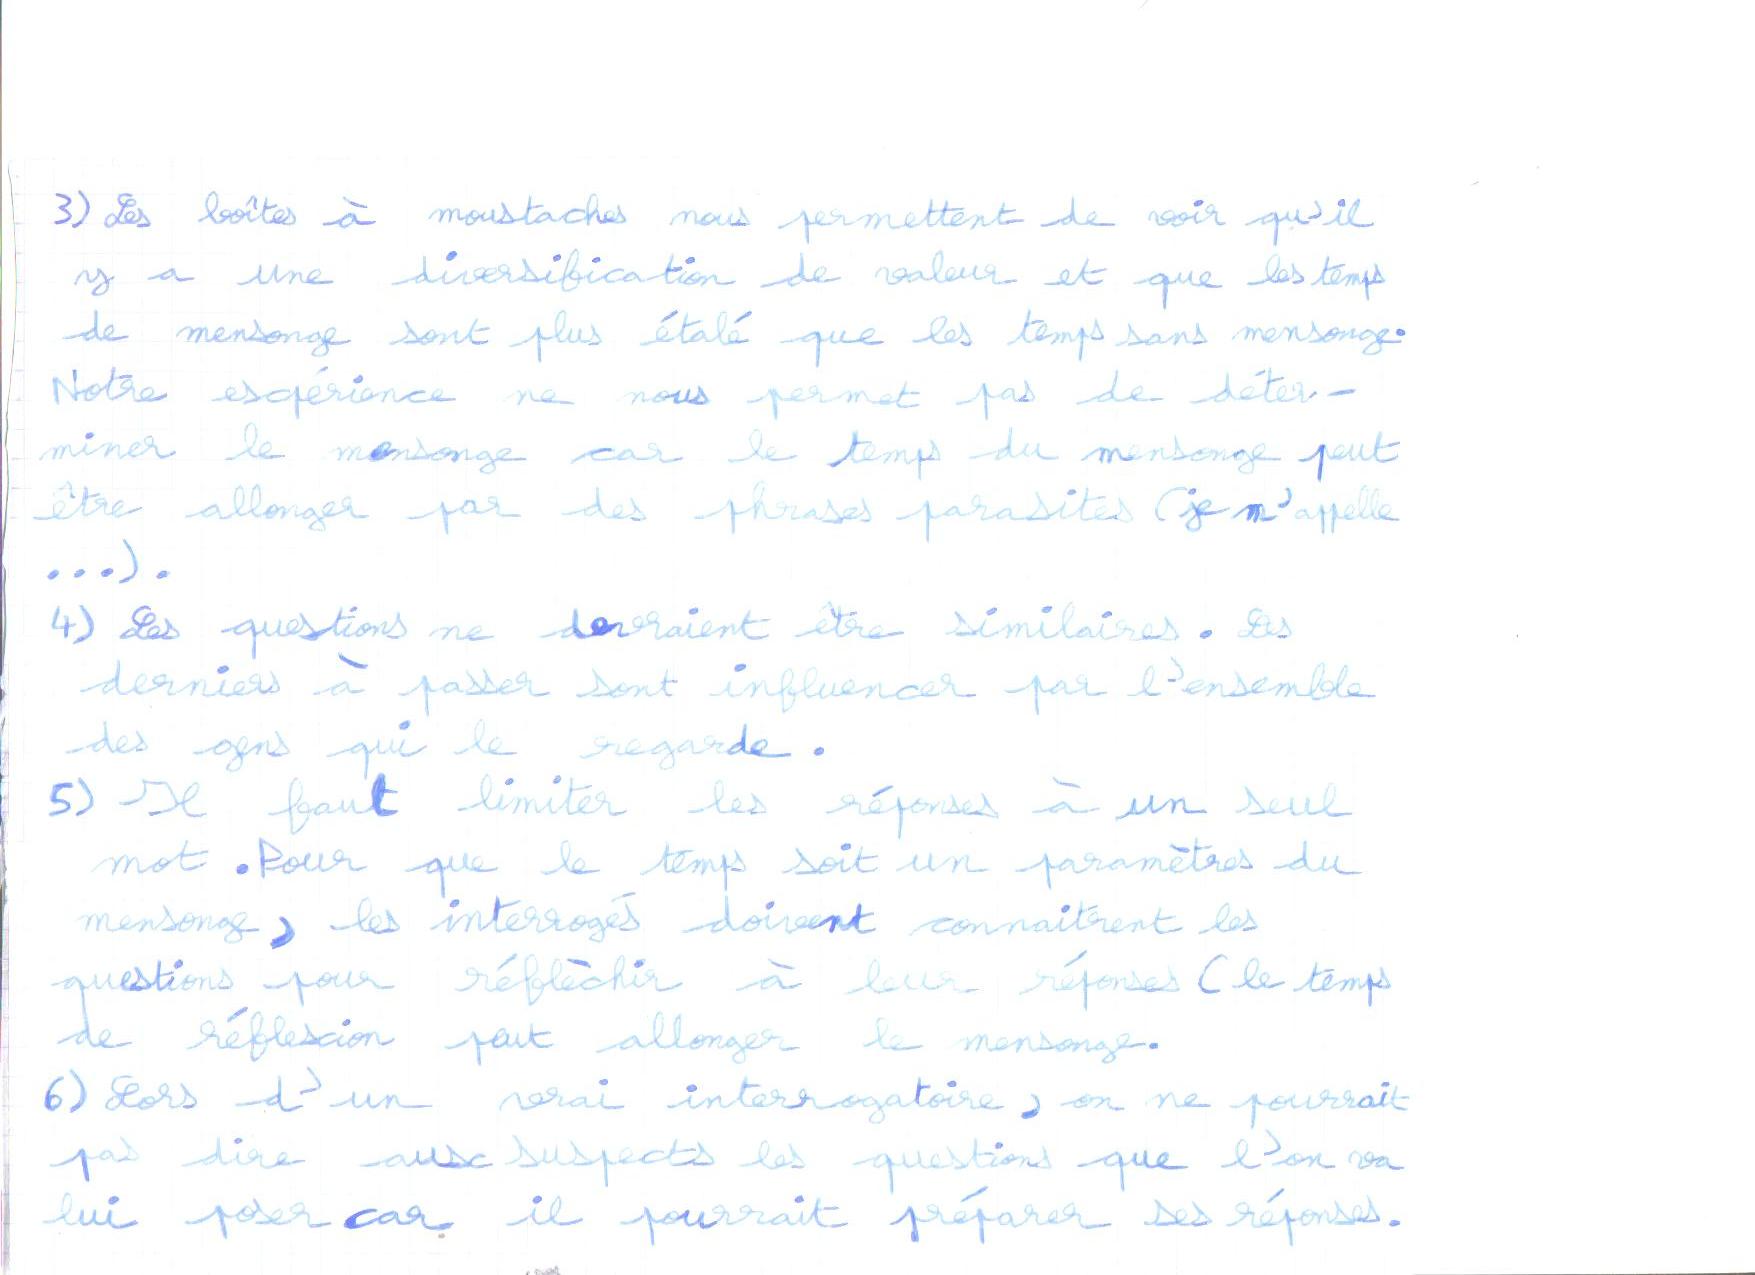 3) Les boîtes à moustaches nous permettent de voir qu'il
y a une diversification de valeur et que les temps
de mensonge sont plus étalé que les temps sans mensonge.
Notre expérience ne nous permet pas de déter-
miner le mensonge car le temps du mensonge peut
être allonger par des phrases parasites (je m'appelle
...).
4) Les questions ne devraient être similaires. Les
derniers à passer sont influencer par l'ensemble
des gens qui le regarde.
5) Il faut limiter les réponses à un seul
mot. Pour que le temps soit un paramètres du
mensonge, les interrogés doivent connaitrent les
questions pour réflèchir à leur réponses (le temps
de réflexion peut allonger le mensonge.
6) Lors d'un vrai interrogatoire, on ne pourrait
pas dire aux suspects les questions que l'on va
lui poser car il pourrait préparer ses réponses.